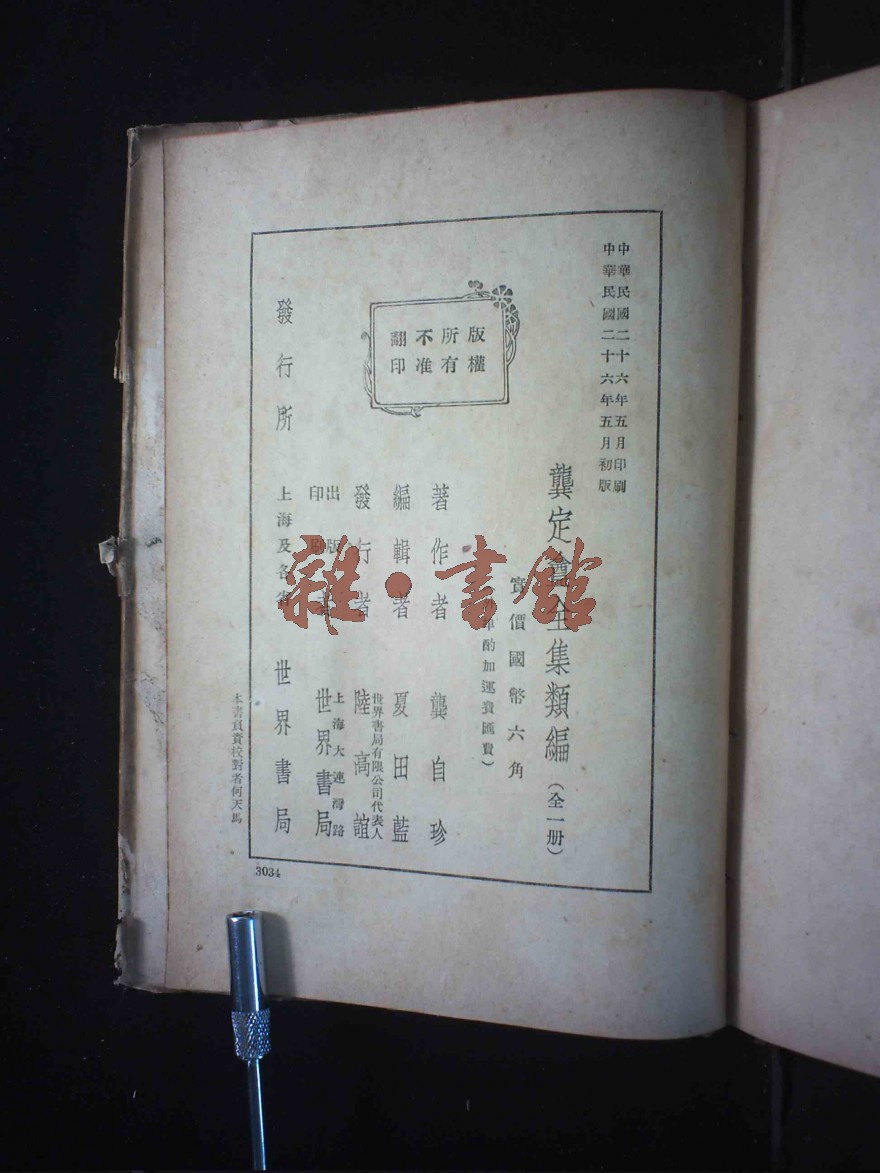 中華民國二十六年五月印刷
中華民國二十六年五月初版
龔定盦全集類編（全一册）
實價國幣六角
酌加運費匯費）
版權
所有
不准
翻印
著作者 龔自珍
編輯者 夏田藍
發行者 世界書局有限公司代表人 陸高誼
出版
印刷者 上海大連灣路 世界書局
發行所 上海及各省 世界書局
本書負責校對者何天馬
3034
雜·書館